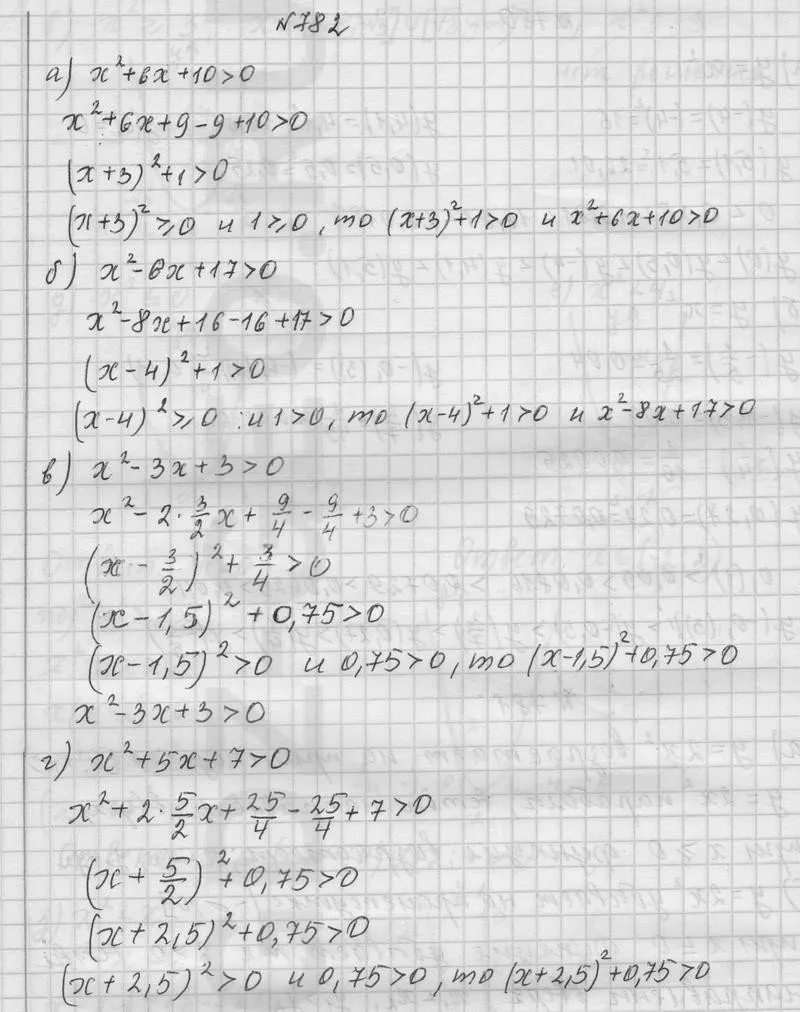 №782
а) x²+6x+10>0
x²+6x+9-9+10>0
(x+3)²+1>0
(x+3)²⩾0 и 1⩾0, то (x+3)²+1>0 и x²+6x+10>0
б) x²-8x+17>0
x²-8x+16-16+17>0
(x-4)²+1>0
(x-4)²⩾0 и 1>0, то (x-4)²+1>0 и x²-8x+17>0
в) x²-3x+3>0
x²-2·3/2x+9/4-9/4+3>0
(x-3/2)²+3/4>0
(x-1,5)²+0,75>0
(x-1,5)²>0 и 0,75>0, то (x-1,5)²+0,75>0
x²-3x+3>0
г) x²+5x+7>0
x²+2·5/2x+25/4-25/4+7>0
(x+5/2)²+0,75>0
(x+2,5)²+0,75>0
(x+2,5)²>0 и 0,75>0, то (x+2,5)²+0,75>0